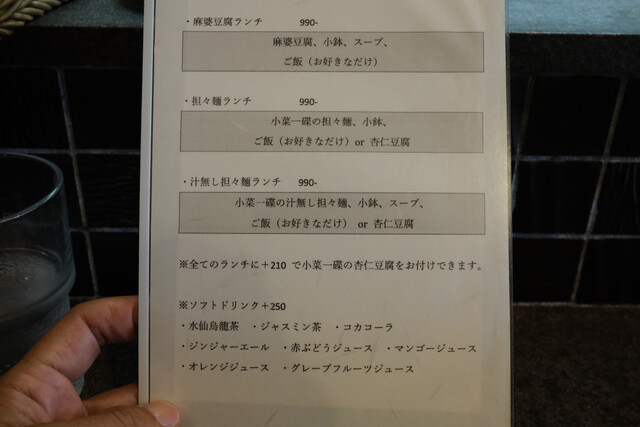 ・麻婆豆腐ランチ 990-
麻婆豆腐、小鉢、スープ、
ご飯（お好きなだけ）
・担々麺ランチ 990-
小菜一碟の担々麺、小鉢、
ご飯（お好きなだけ）or 杏仁豆腐
・汁無し担々麺ランチ 990-
小菜一碟の汁無し担々麺、小鉢、スープ、
ご飯（お好きなだけ） or 杏仁豆腐
※全てのランチに＋210 で小菜一碟の杏仁豆腐をお付けできます。
※ソフトドリンク＋250
・水仙烏龍茶 ・ジャスミン茶 ・コカコーラ
・ジンジャーエール ・赤ぶどうジュース ・マンゴージュース
・オレンジジュース ・グレープフルーツジュース